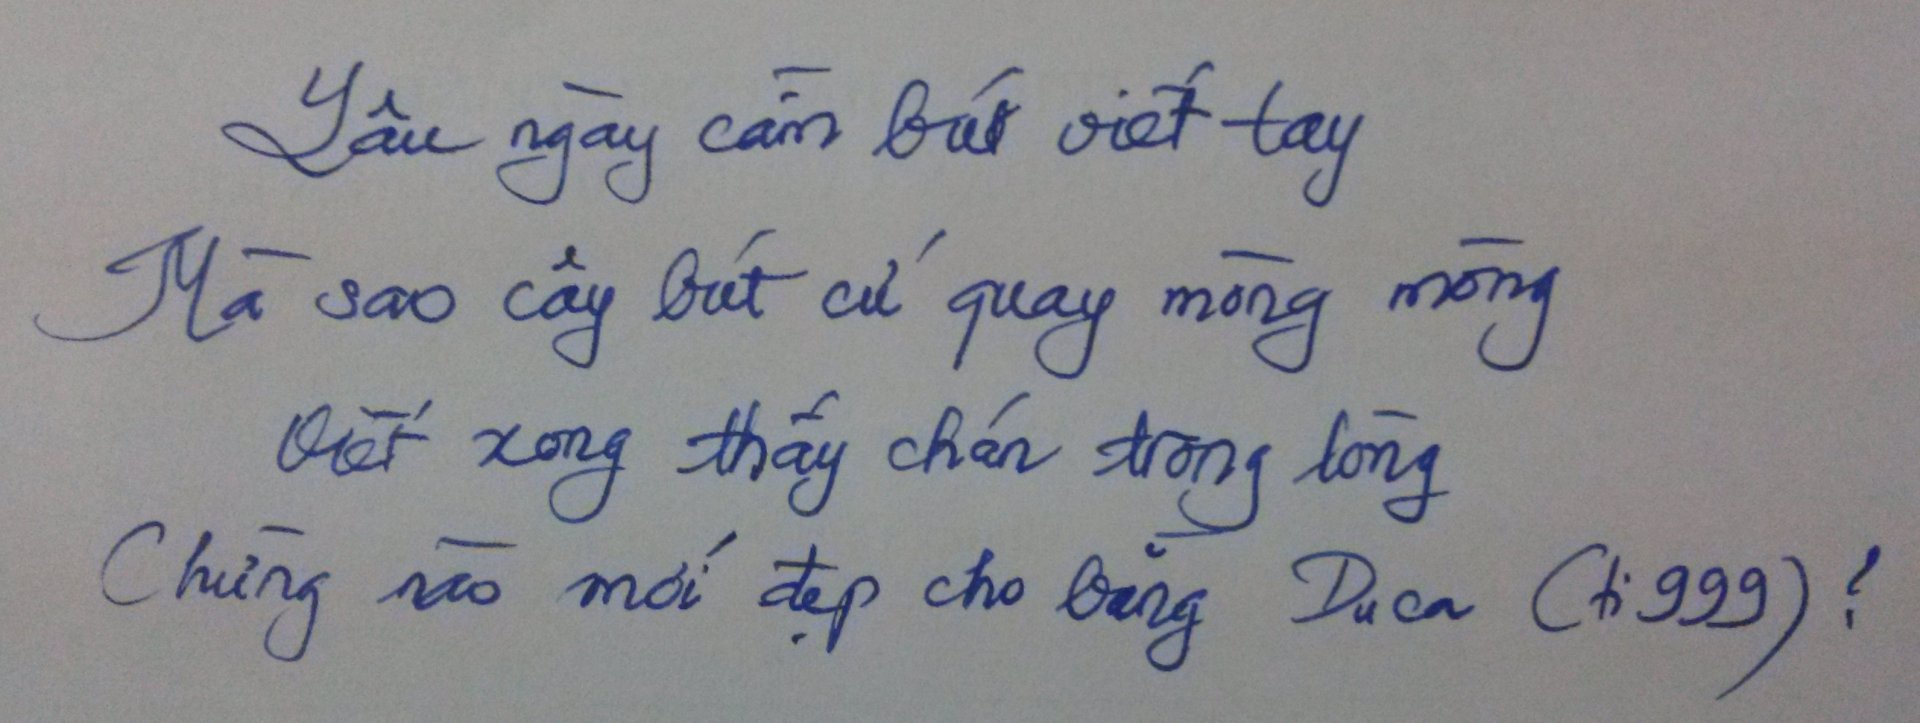 Lâu ngày cầm bút viết tay
Mà sao cây bút cứ quay mòng mòng
Viết xong thấy chán trong lòng
Chừng nào mới đẹp cho bằng Duca (ti999)?